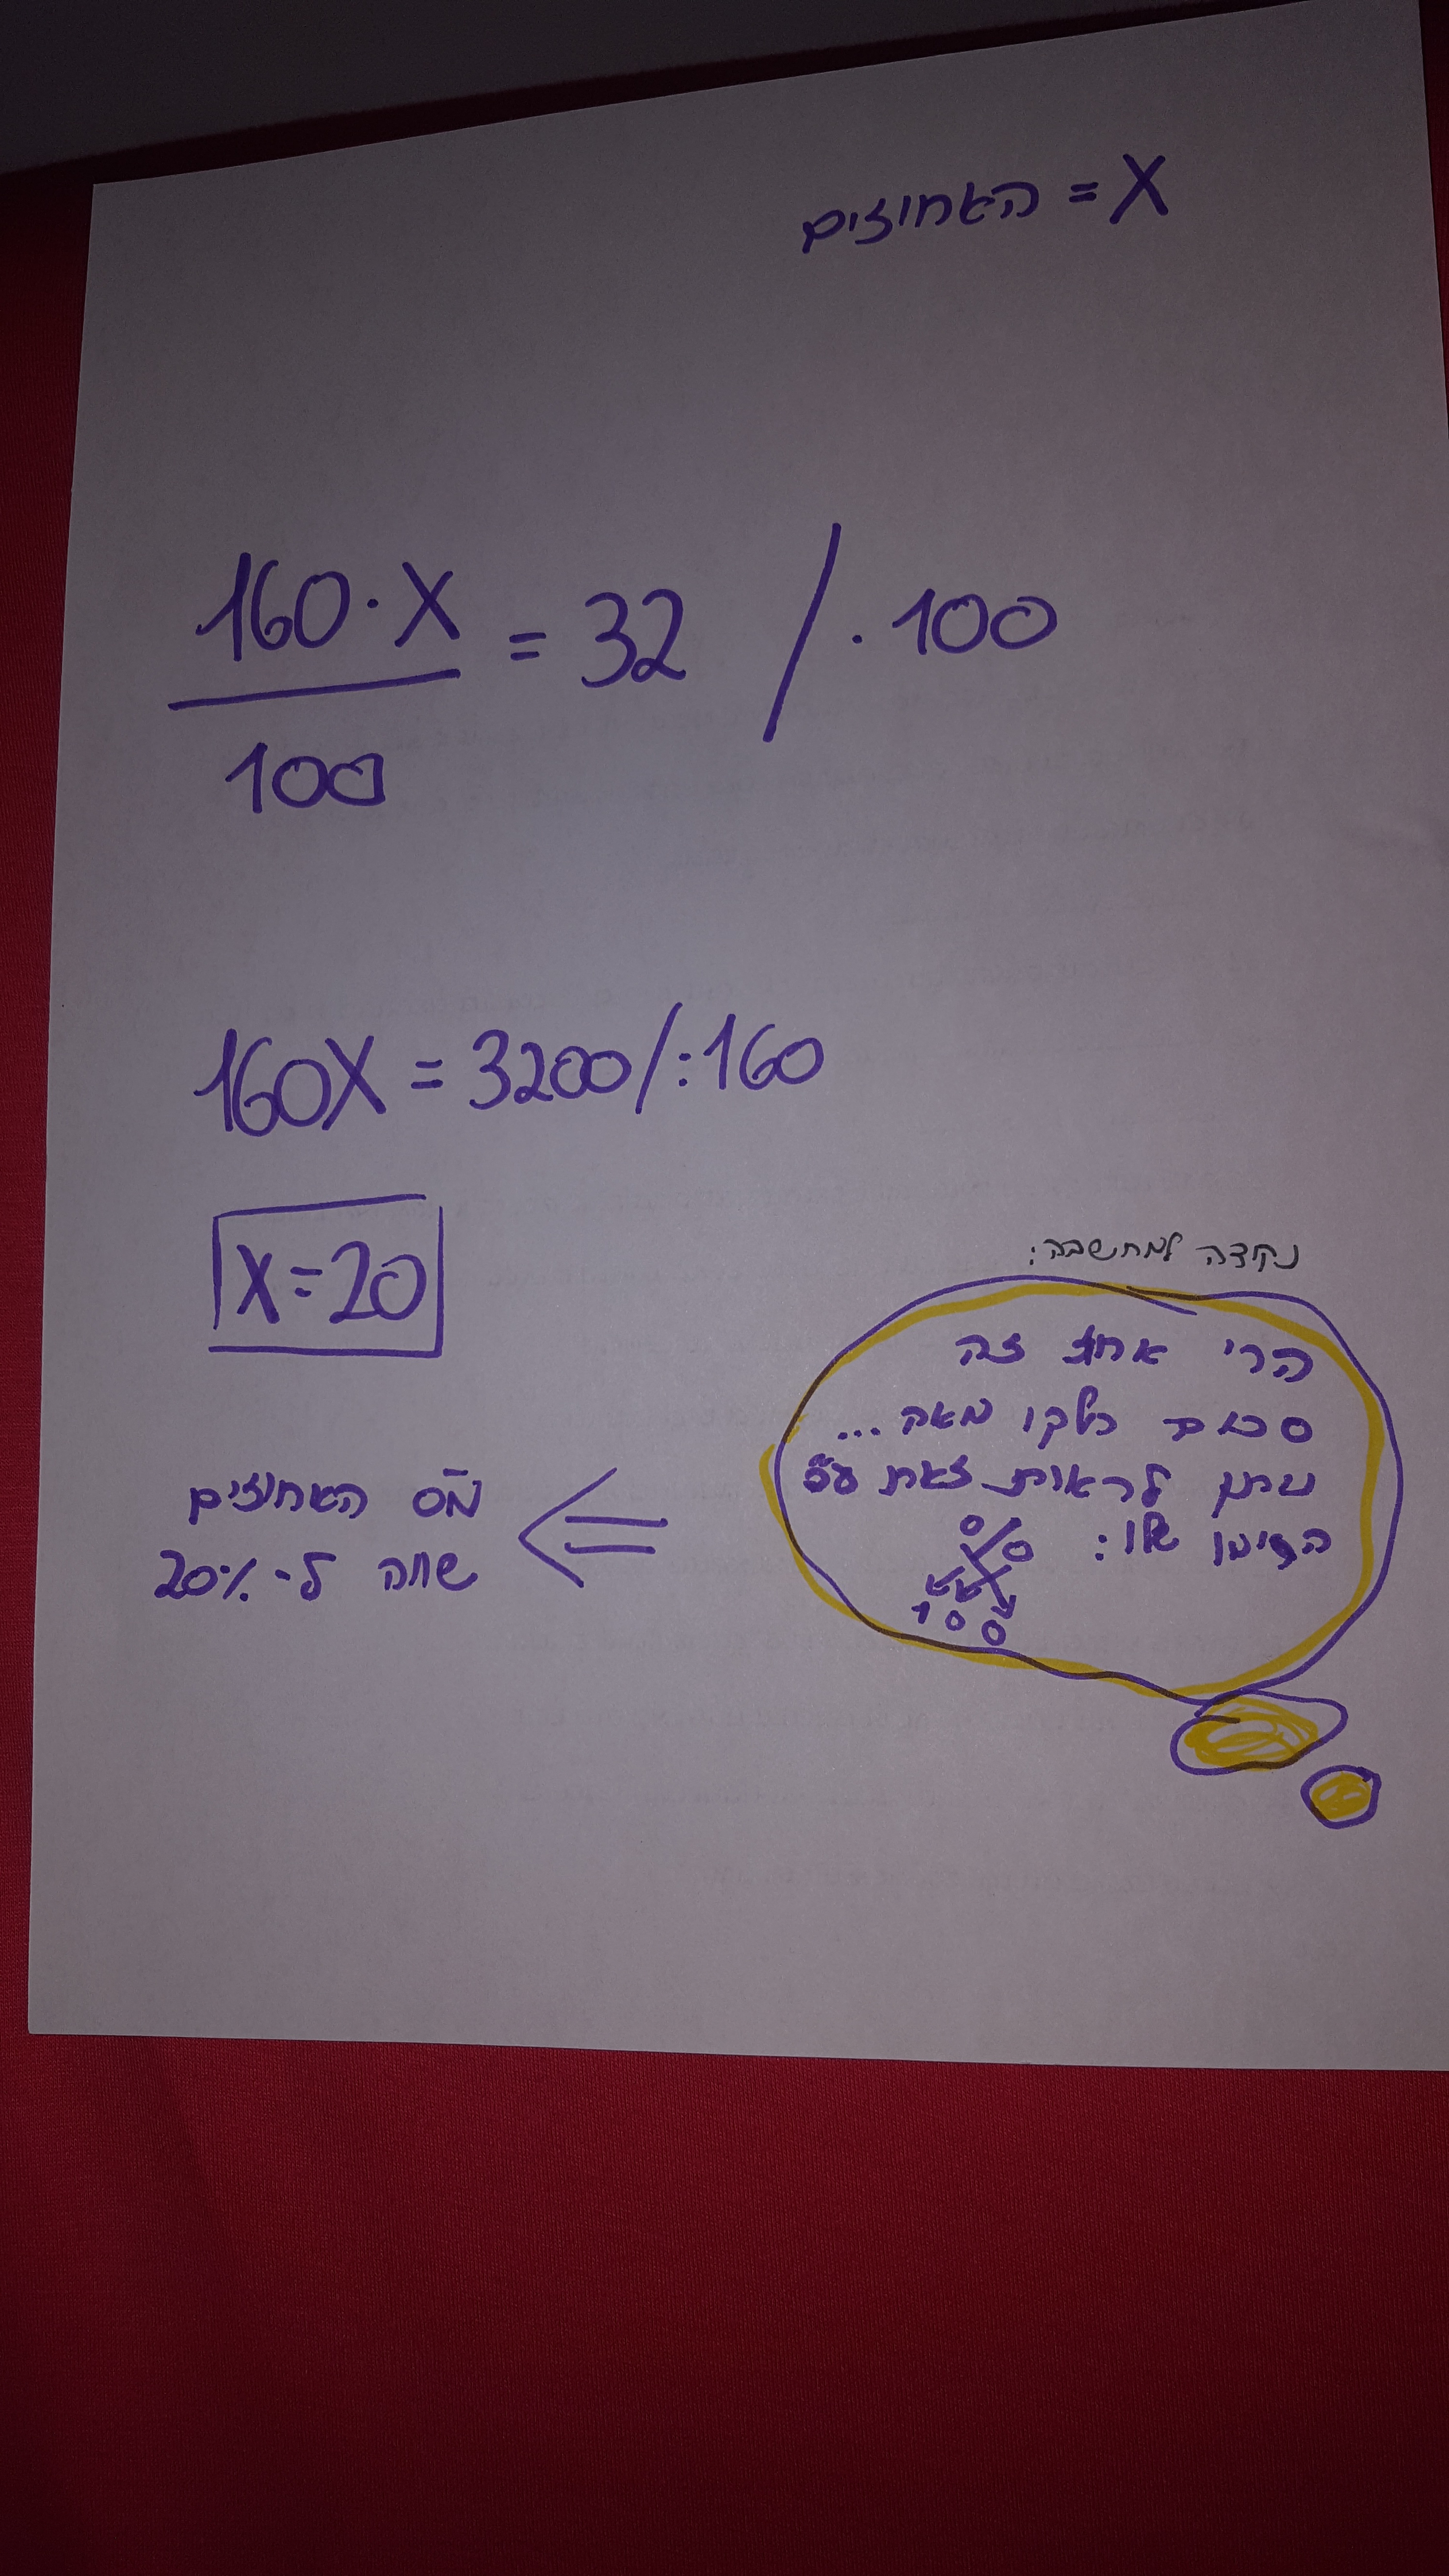 האחוזים = X
160·X
= 32 / ·100
100
160X = 3200/:160
X=20
נקודה למחשבה:
הרי אחוז זה
סכום חלקי מאה...
ניתן לראות זאת ע"פ
הסימן שלו: %
100
מס' האחוזים
שווה ל-20%